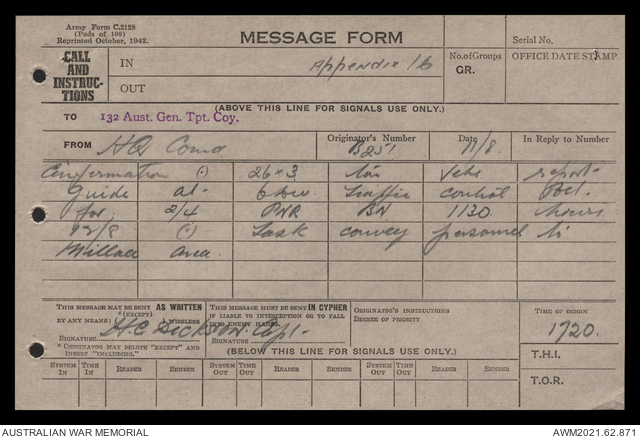 Army Form C.2128
(Pads of 100)
Reprinted October, 1942.
MESSAGE FORM
Serial No.
CALL AND INSTRUCTIONS
IN
Appendix 16
No. of Groups
GR.
OFFICE DATE STAMP
OUT
(ABOVE THIS LINE FOR SIGNALS USE ONLY.)
TO 132 Aust. Gen. Tpt. Coy.
FROM HQ Comd
Originator's Number
B251
Date
11/8.
In Reply to Number
Confirmation (.) 26 x 3 ton vehs report
Guide at 6 Div traffic control Pct.
for 2/4 PNR BN 1130 hours
12/8 (.) Task convey personnel to
area.
THIS MESSAGE MAY BE SENT AS WRITTEN
(EXCEPT)
BY ANY MEANS: WIRELESS
SIGNATURE H.C. Dickson Capt.
* ORIGINATOR MAY DELETE "EXCEPT" AND INSERT "INCLUDING."
THIS MESSAGE MUST BE SENT IN CYPHER
IF LIABLE TO INTERCEPTION OR TO FALL INTO ENEMY HANDS.
SIGNATURE
ORIGINATOR'S INSTRUCTIONS
DEGREE OF PRIORITY
TIME OF ORIGIN
1720.
(BELOW THIS LINE FOR SIGNALS USE ONLY.)
T.H.I.
SYSTEM IN TIME IN READER SENDER SYSTEM OUT TIME OUT READER SENDER SYSTEM OUT TIME OUT READER SENDER
T.O.R.
AUSTRALIAN WAR MEMORIAL
AWM2021.62.871